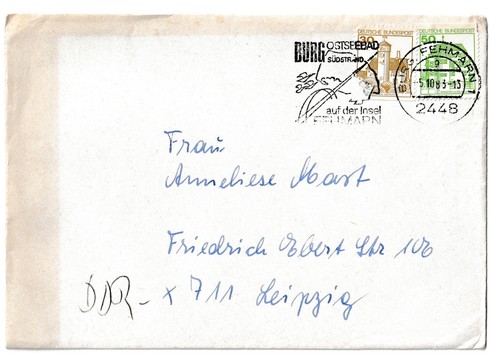 30 DEUTSCHE BUNDESPOST
50 DEUTSCHE BUNDESPOST
BURG OSTSEEBAD
SÜDSTRAND
auf der Insel
FEHMARN
BURG FEHMARN 1
a
-5.10.83-13
2448
Frau
Anneliese Mast
Friedrich Ebert Str 106
DDR - x 711 Leipzig